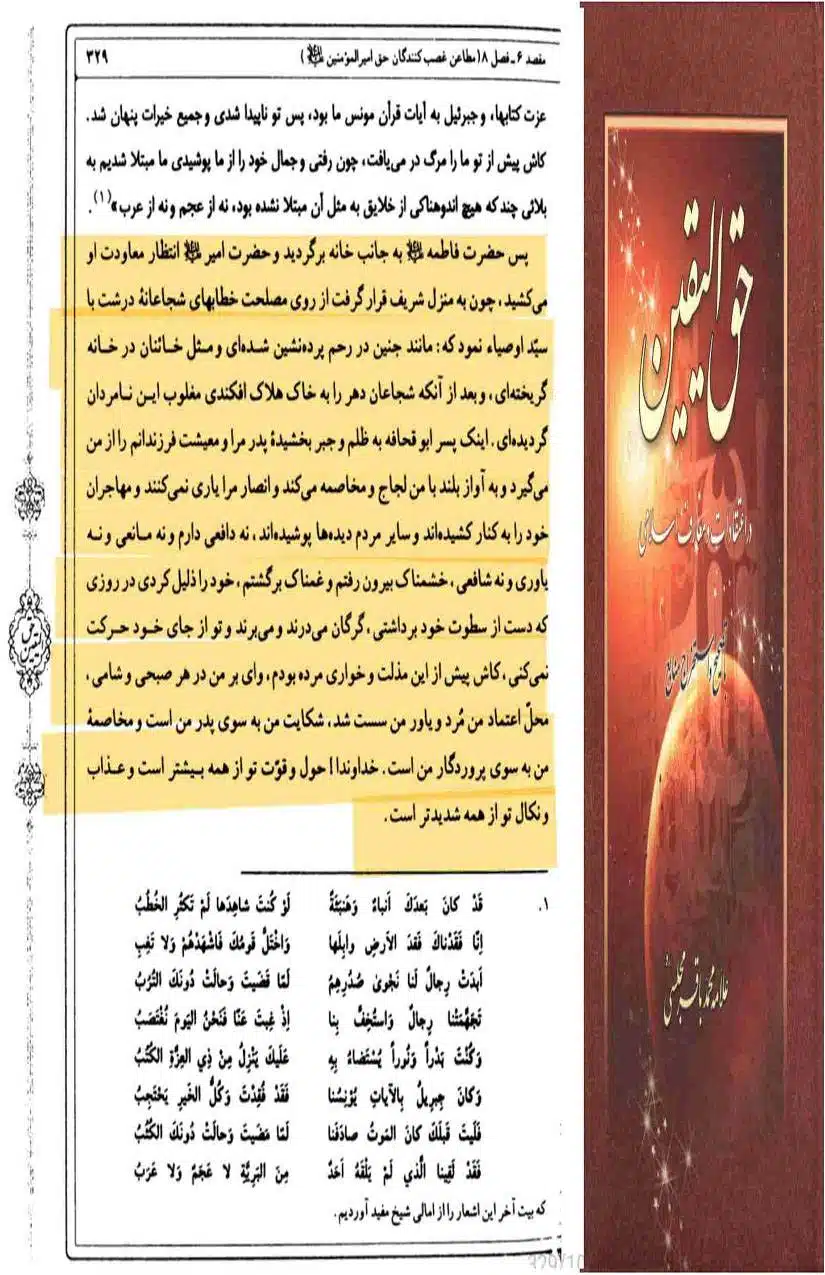 مقصد ۶ـ فصل ۸ (مطاعن غصب کنندگان حق امیرالمؤمنین ﷷ) ۳۲۹
عزت کتابها، و جبرئیل به آیات قرآن مونس ما بود، پس تو ناپیدا شدی و جمیع خیرات پنهان شد.
کاش پیش از تو ما را مرگ در می‌یافت، چون رفتی و جمال خود را از ما پوشیدی ما مبتلا شدیم به
بلائی چند که هیچ اندوهناکی از خلایق به مثل آن مبتلا نشده بود، نه از عجم و نه از عرب»(۱).
پس حضرت فاطمه به جانب خانه برگردید و حضرت امیر انتظار معاودت او
می‌کشید، چون به منزل شریف قرار گرفت از روی مصلحت خطابهای شجاعانهٔ درشت با
سیّد اوصیاء نمود که: مانند جنین در رحم پرده‌نشین شده‌ای و مثل خائنان در خانه
گریخته‌ای، و بعد از آنکه شجاعان دهر را به خاک هلاک افکندی مغلوب این نامردان
گردیده‌ای. اینک پسر ابو قحافه به ظلم و جبر بخشیدهٔ پدر مرا و معیشت فرزندانم را از من
می‌گیرد و به آواز بلند با من لجاج و مخاصمه می‌کند و انصار مرا یاری نمی‌کنند و مهاجران
خود را به کنار کشیده‌اند و سایر مردم دیده‌ها پوشیده‌اند، نه دافعی دارم و نه مانعی و نه
یاوری و نه شافعی، خشمناک بیرون رفتم و غمناک برگشتم، خود را ذلیل کردی در روزی
که دست از سطوت خود برداشتی، گرگان می‌درند و می‌برند و تو از جای خود حرکت
نمی‌کنی، کاش پیش از این مذلت و خواری مرده بودم، وای بر من در هر صبحی و شامی،
محلّ اعتماد من مُرد و یاور من سست شد، شکایت من به سوی پدر من است و مخاصمهٔ
من به سوی پروردگار من است. خداوندا! حول و قوّت تو از همه بیشتر است و عذاب
و نکال تو از همه شدیدتر است.
۱. قَدْ كانَ بَعدَكَ أنباءٌ وَهَنبَثةٌ لَوْ كُنتَ شاهِدَها لَمْ تَكثُرِ الخُطُبُ
إنّا فَقَدْناكَ فَقدَ الأرضِ وابِلَها وَاخْتَلَّ قَومُكَ فَاشْهَدْهُمْ وَلا تَغِبِ
أبدَتْ رِجالٌ لَنا نَجوىٰ صُدُرِهِمُ لَمّا قَضَيتَ وَحالَتْ دُونَكَ التُرَبُ
تَجَهَّمَتْنا رِجالٌ وَاستُخِفَّ بِنا إذ غِبتَ عَنّا فَنَحْنُ اليَومَ نُغْتَصَبُ
وَكُنْتَ بَدْراً وَنُوراً يُسْتَضاءُ بِهِ عَلَيكَ يَنْزِلُ مِنْ ذِي العِزَّةِ الكُتُبُ
وَكانَ جِبرِيلُ بِالآياتِ يُؤنِسُنا فَقَدْ فُقِدْتَ وَكُلُّ الخَيرِ يَحْتَجِبُ
فَلَيتَ قَبلَكَ كانَ المَوتُ صادَفَنا لَمّا مَضَيتَ وَحالَتْ دُونَكَ الكُتُبُ
فَقَدْ لَقِينا الَّذي لَمْ يَلْقَهُ أحَدٌ مِنَ البَرِيَّةِ لا عَجَمٌ وَلا عَرَبُ
که بیت آخر این اشعار را از امالی شیخ مفید آوردیم.
حق الیقین
حق الیقین
در اعتقادات و معارف اسلامی
علامه محمد باقر مجلسی